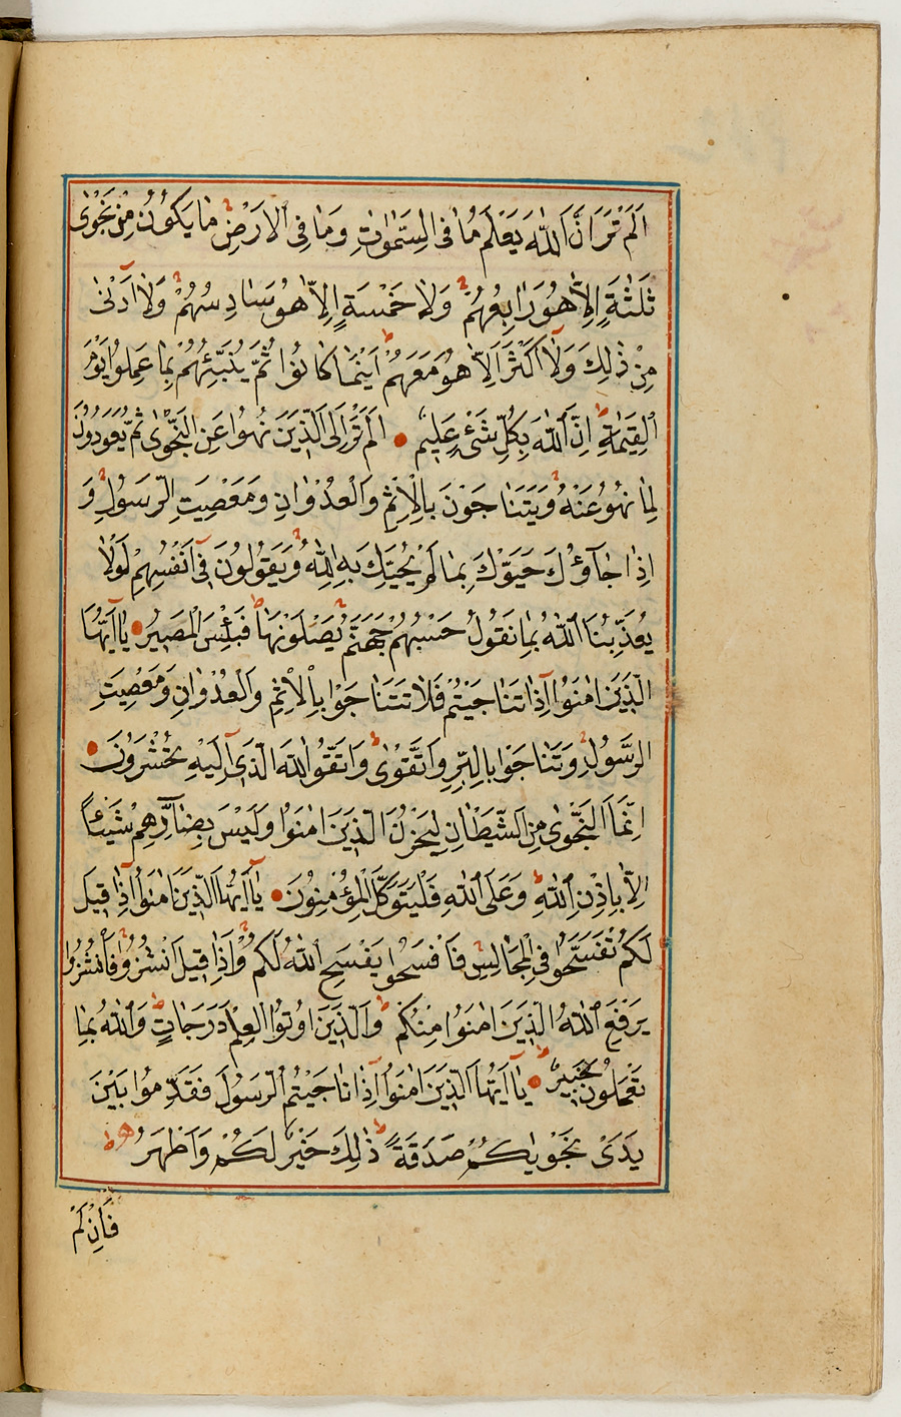 اَلَمْ تَرَ اَنَّ اللّٰهَ يَعْلَمُ مَا فِي السَّمٰوَاتِ وَمَا فِي الْاَرْضِ مَا يَكُوْنُ مِنْ نَجْوٰى
ثَلٰثَةٍ اِلَّا هُوَ رَابِعُهُمْ وَلَا خَمْسَةٍ اِلَّا هُوَ سَادِسُهُمْ وَلَا اَدْنٰى
مِنْ ذٰلِكَ وَلَا اَكْثَرَ اِلَّا هُوَ مَعَهُمْ اَيْنَمَا كَانُوا ثُمَّ يُنَبِّئُهُمْ بِمَا عَمِلُوا يَوْمَ
الْقِيٰمَةِ اِنَّ اللّٰهَ بِكُلِّ شَىْءٍ عَلِيمٌ اَلَمْ تَرَ اِلَى الَّذِينَ نُهُوا عَنِ النَّجْوٰى ثُمَّ يَعُودُونَ
لِمَا نُهُوا عَنْهُ وَيَتَنَاجَوْنَ بِالْاِثْمِ وَالْعُدْوَانِ وَمَعْصِيَتِ الرَّسُولِ وَ
اِذَا جَآؤُكَ حَيَّوْكَ بِمَا لَمْ يُحَيِّكَ بِهِ اللّٰهُ وَيَقُولُونَ فِىٓ اَنْفُسِهِمْ لَوْلَا
يُعَذِّبُنَا اللّٰهُ بِمَا نَقُولُ حَسْبُهُمْ جَهَنَّمُ يَصْلَوْنَهَا فَبِئْسَ الْمَصِيرُ يَا اَيُّهَا
الَّذِينَ اٰمَنُوا اِذَا تَنَاجَيْتُمْ فَلَا تَتَنَاجَوْا بِالْاِثْمِ وَالْعُدْوَانِ وَمَعْصِيَتِ
الرَّسُولِ وَتَنَاجَوْا بِالْبِرِّ وَالتَّقْوٰى وَاتَّقُوا اللّٰهَ الَّذِى اِلَيْهِ تُحْشَرُونَ
اِنَّمَا النَّجْوٰى مِنَ الشَّيْطَانِ لِيَحْزُنَ الَّذِينَ اٰمَنُوا وَلَيْسَ بِضَآرِّهِمْ شَيْئًا
اِلَّا بِاِذْنِ اللّٰهِ وَعَلَى اللّٰهِ فَلْيَتَوَكَّلِ الْمُؤْمِنُونَ يَا اَيُّهَا الَّذِينَ اٰمَنُوا اِذَا قِيلَ
لَكُمْ تَفَسَّحُوا فِى الْمَجَالِسِ فَافْسَحُوا يَفْسَحِ اللّٰهُ لَكُمْ وَاِذَا قِيلَ انْشُزُوا فَانْشُزُوا
يَرْفَعِ اللّٰهُ الَّذِينَ اٰمَنُوا مِنْكُمْ وَالَّذِينَ اُوتُوا الْعِلْمَ دَرَجَاتٍ وَاللّٰهُ بِمَا
تَعْمَلُونَ خَبِيرٌ يَا اَيُّهَا الَّذِينَ اٰمَنُوا اِذَا نَاجَيْتُمُ الرَّسُولَ فَقَدِّمُوا بَيْنَ
يَدَىْ نَجْوٰيكُمْ صَدَقَةً ذٰلِكَ خَيْرٌ لَكُمْ وَاَطْهَرُ
فَاِنْ لَمْ